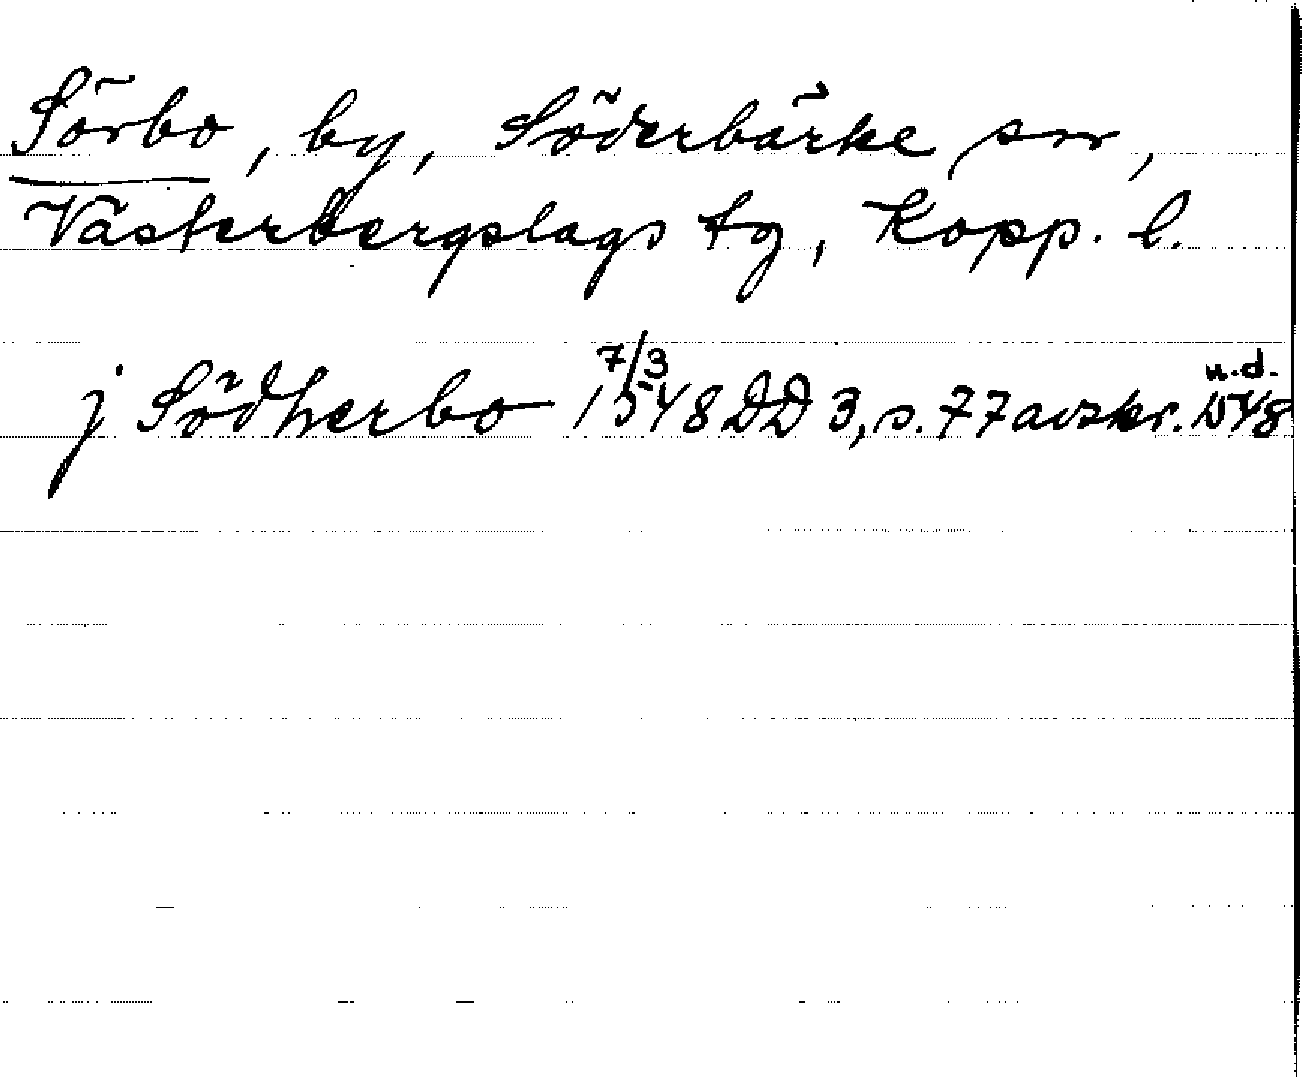 Sörbo, by, Söderbärke sn,
Västerbergslags tg, Kopp. l.
j Södherbo 7/3 1548 DD 3, s. 77 avskr. u.d. 1548